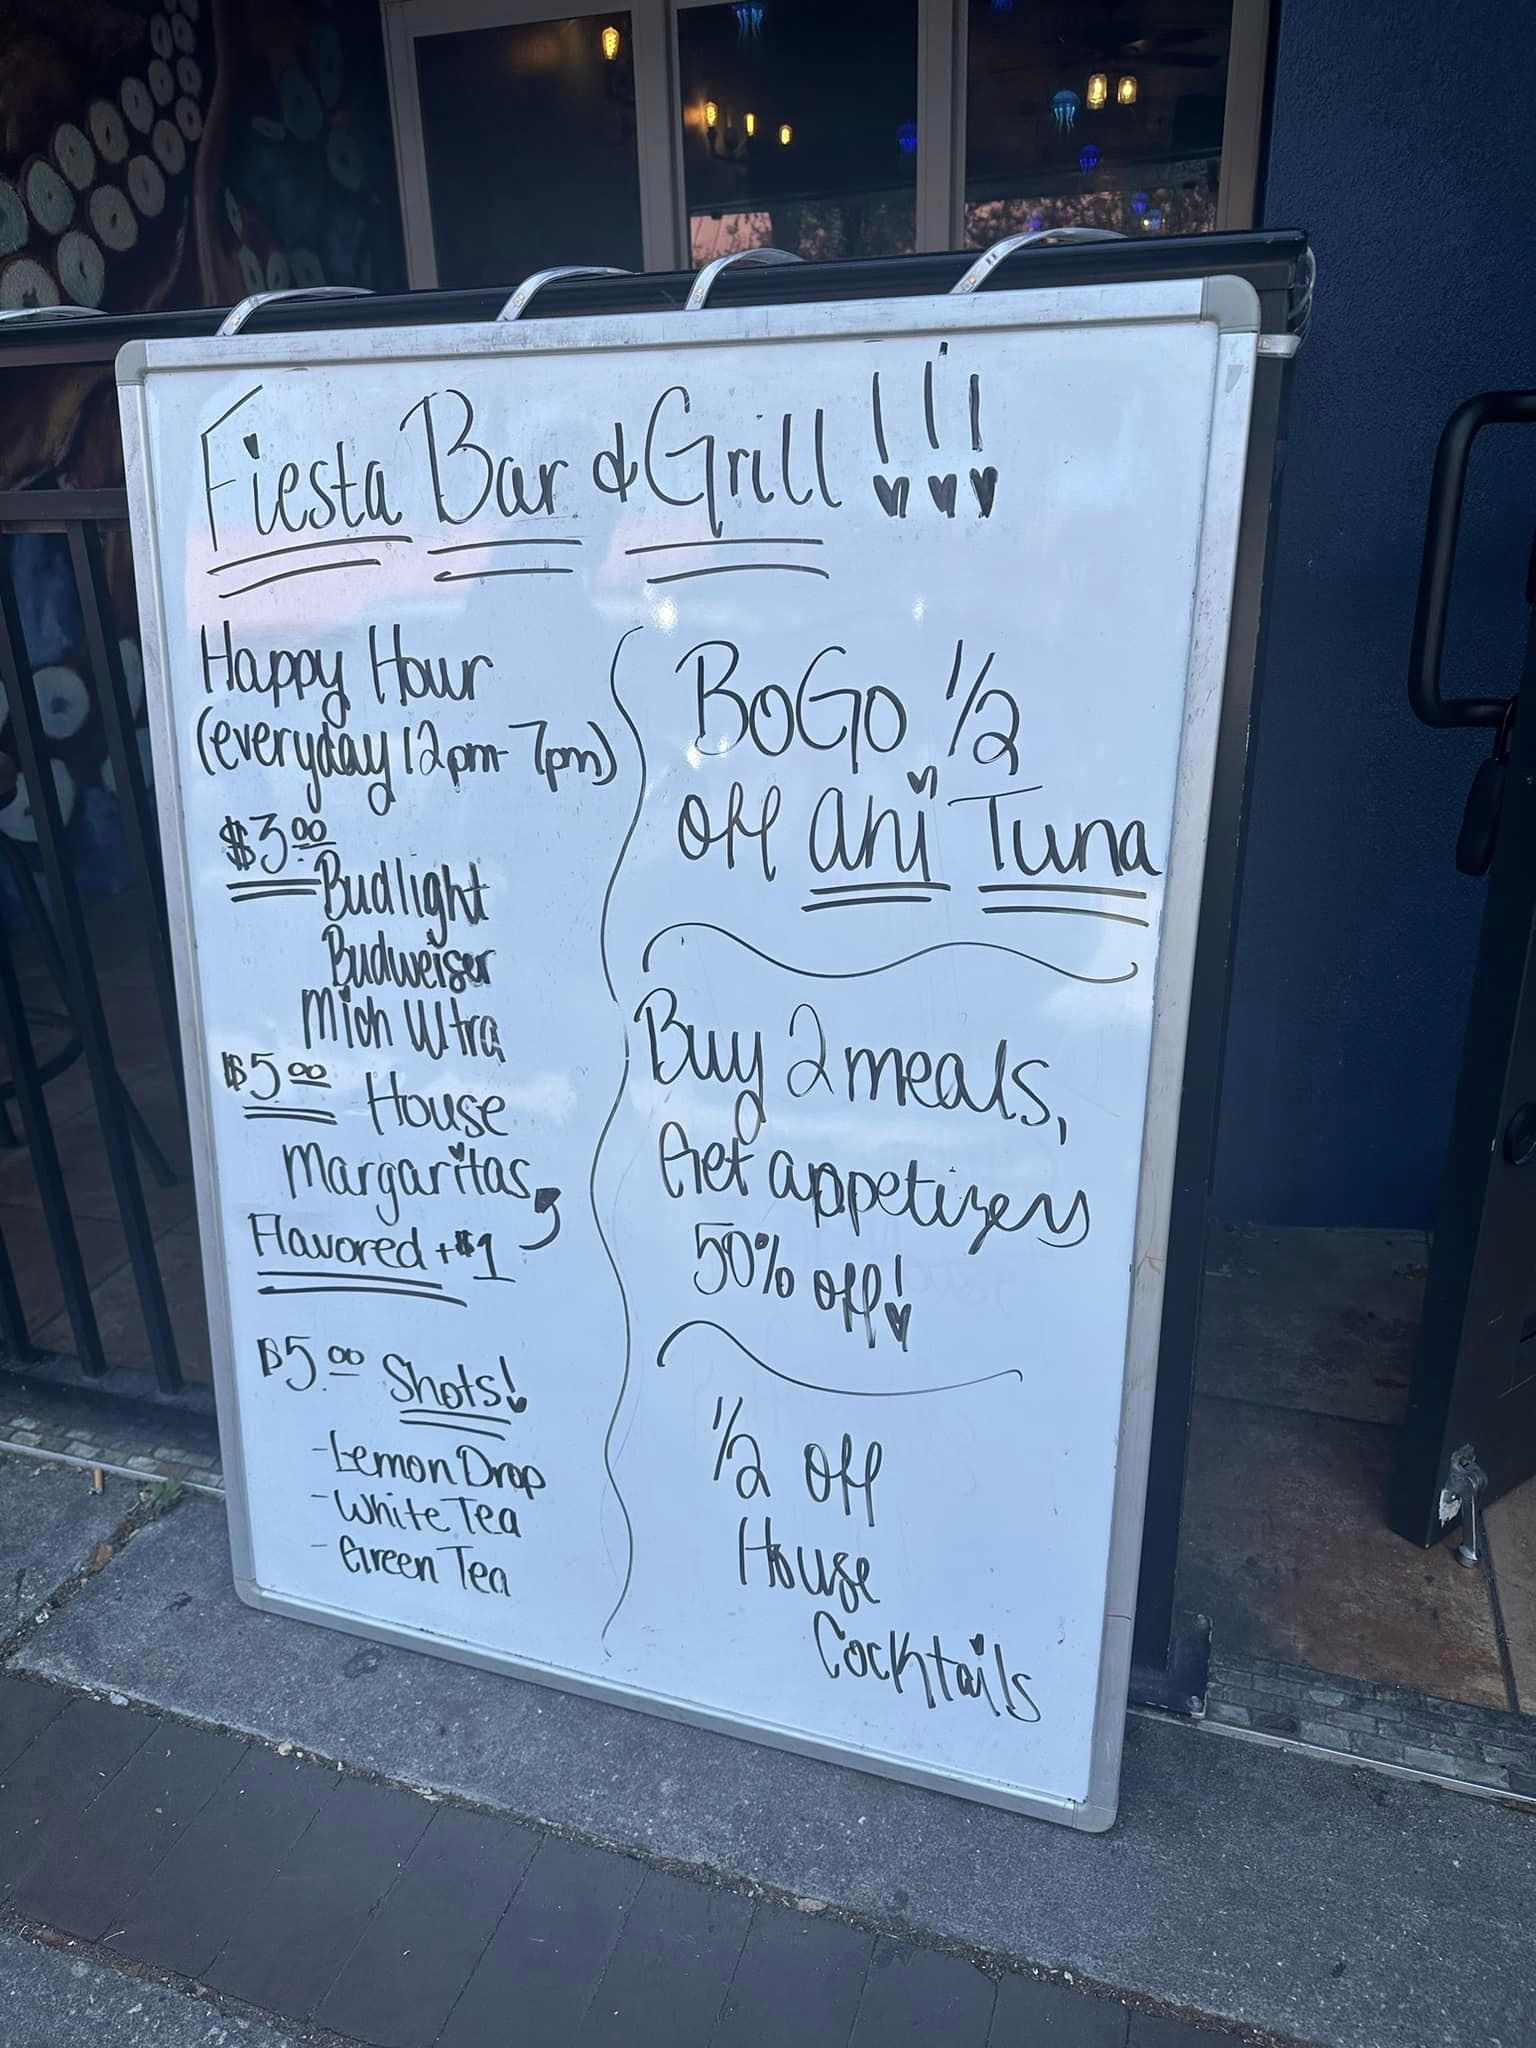 Fiesta Bar & Grill !!!
Happy Hour
(everyday 12pm-7pm)
$3.00
Budlight
Budweiser
Mich Ultra
$5.00 House
Margaritas
Flavored +$1
$5.00 Shots!
- Lemon Drop
- White Tea
- Green Tea
BoGo 1/2
off Ahi Tuna
Buy 2 meals,
Get appetizers
50% off!
1/2 off
House
Cocktails